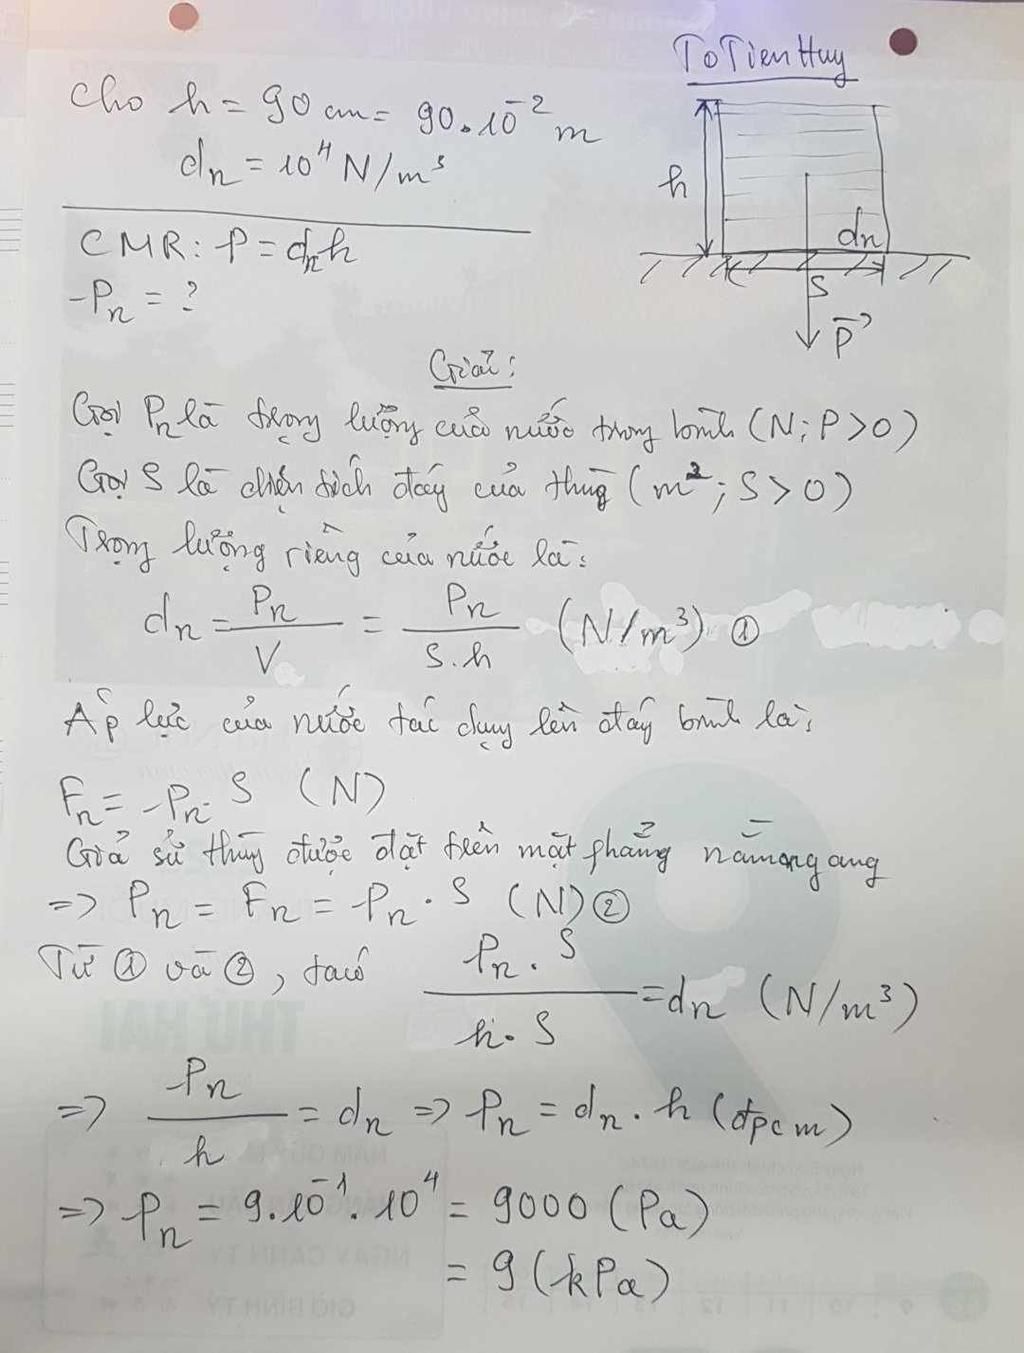 To Tien Huy
Cho h = 90 cm = 90.10⁻² m
dₙ = 10⁴ N/m³
h
dₙ
S
P⃗
CMR: P = dₙh
-Pₙ = ?
Giải:
Gọi Pₙ là trọng lượng của nước trong bình (N; P > 0)
Gọi S là diện tích đáy của thùng (m²; S > 0)
Trọng lượng riêng của nước là:
dₙ = Pₙ/V = Pₙ/S.h (N/m³) ①
Áp lực của nước tác dụng lên đáy bình là:
Fₙ = -Pₙ. S (N)
Giả sử thùng được đặt trên mặt phẳng nằm ngang
=> Pₙ = Fₙ = Pₙ . S (N) ②
Từ ① và ②, ta có Pₙ . S/h . S = dₙ (N/m³)
=> Pₙ/h = dₙ => Pₙ = dₙ . h (đpcm)
=> Pₙ = 9.10⁻¹. 10⁴ = 9000 (Pa)
= 9 (kPa)
THỨ HAI
NGÀY CANH TÝ
GIỜ BÍNH TÝ